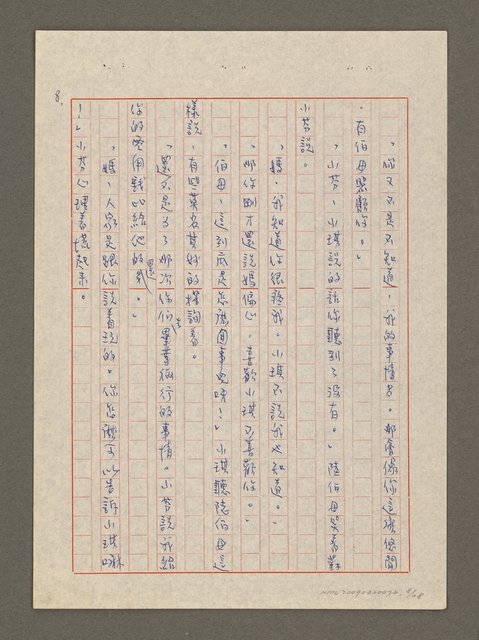 「妳又不是不知道,我的事情多。那會像你這麼悠閒
。有伯母照顧你。」
「小芬,小琪說的話你聽到了沒有。」陸伯母笑着對
小芬說。
「媽,我知道你很疼我。小琪不說我也知道。」
「那你剛才還說媽偏心,喜歡小琪不喜歡你。」
「伯母,這到底是怎麼回事兒呀!」小琪聽陸伯母這
樣說,有些莫名其妙的探詢着。
「還不是為了那次你們畢業旅行的事情。小芬說我給
你的費用比給他的還多。」
「媽,人家是跟你說着玩的。你怎麼可以告訴小琪嘛
!」小芬心理着急起來。
8.